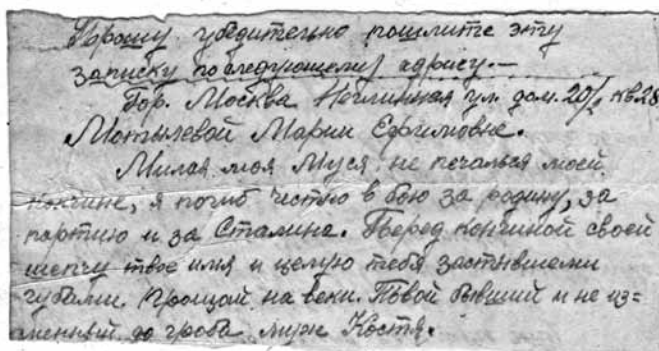 Прошу убедительно пошлите эту
записку последующему адрису.—
Гор. Москва Неглинная ул. дом. 20/2 кв. 28
Мотылевой Марии Ефимовне.
Милая моя Муся, не печалься моей
кончине, я погиб честно в бою за родину, за
партию и за Сталина. Перед кончиной своей
шепчу твое имя и целую тебя застывшеми
губами. Прощай на веки. Твой бывший и не из=
менный до гроба муж Костя.